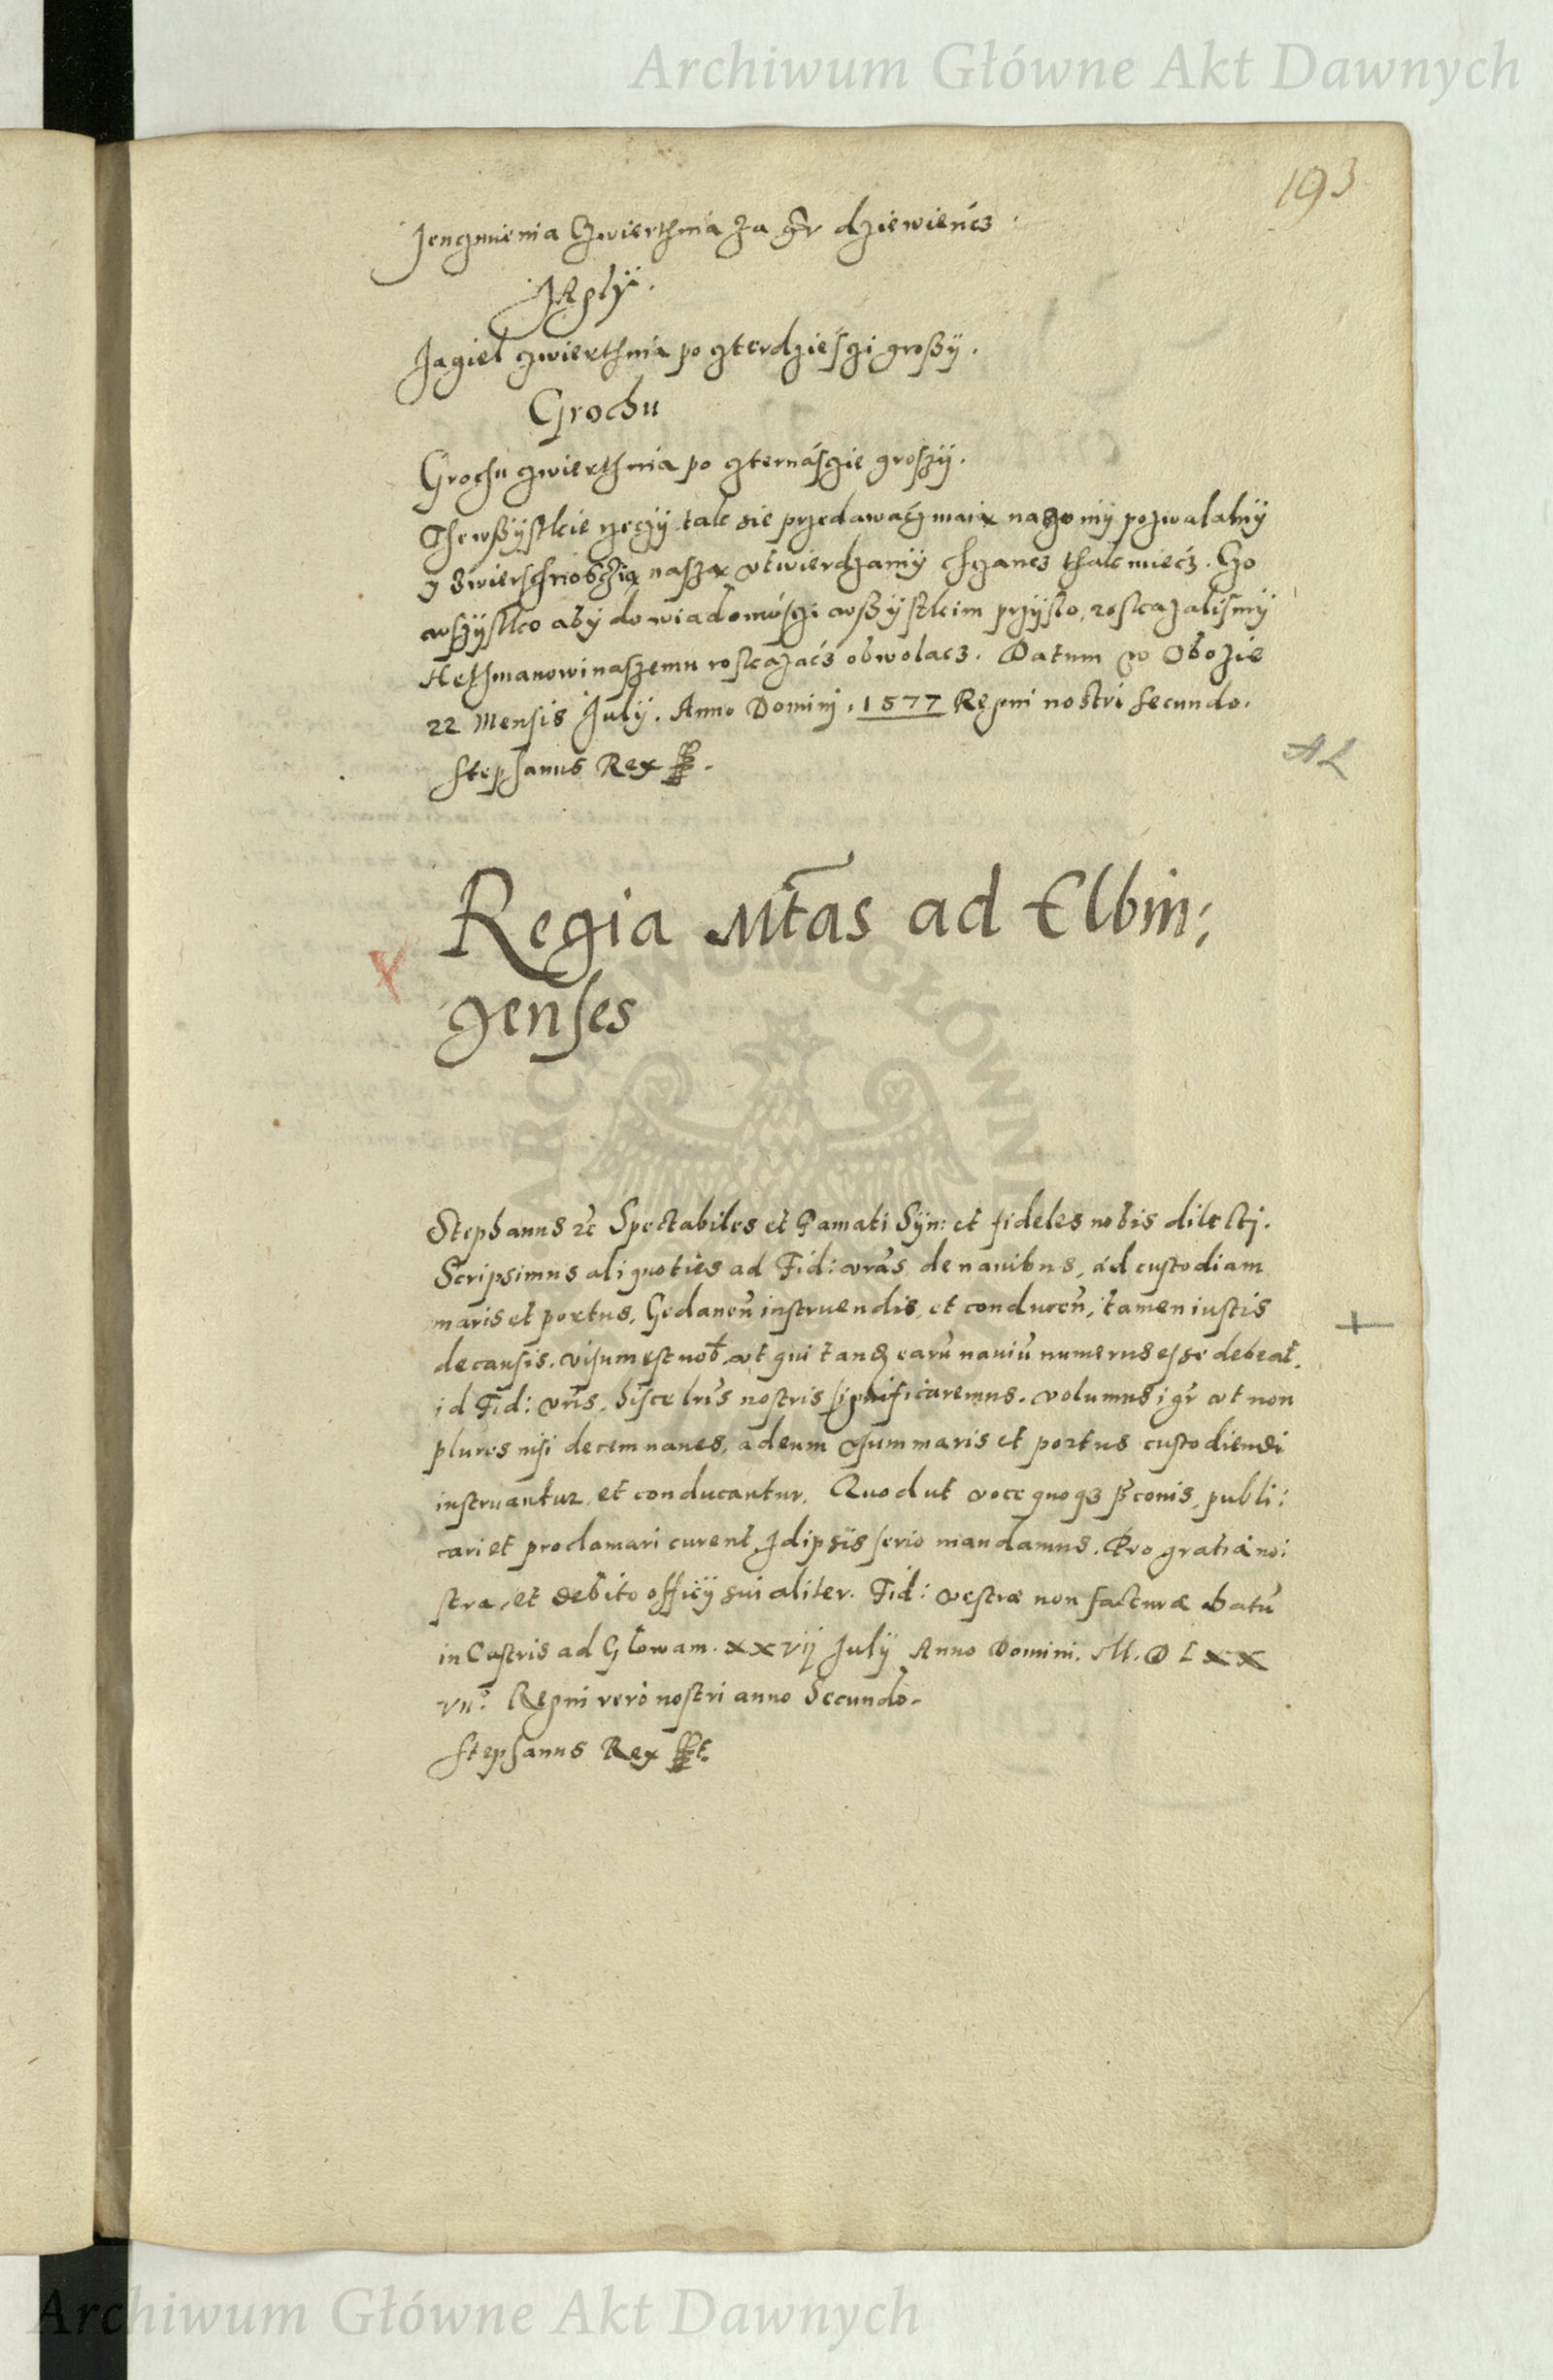 Archiwum Główne Akt Dawnych
193
Jenczmienia Czwierthnia za gr dziewiencz.
Jagiel czwierthnia po czterdziesczi großÿ.
Grochu
Grochu czwierthnia po czternasczie groszÿ.
The wßÿstkie rzeczÿ tak sie przedawacz maia na czo mÿ pozwalamÿ
ÿ Zwierschnosczia nasza vtwierdzamÿ chczancz thak miecz. Czo
wszÿstko abÿ do wiadomosczi wßÿstkim przÿsło, roskazalismÿ
Hethmanowi naszemu roskazacz obwolacz. Datum w Obozie
22 Mensis Julÿ. Anno Domini, 1577 Regni nostri Secundo.
Stephanus Rex
AL
Regia Mtas ad Elbin:
genses
Stephanus &c Spectabiles et Famati Syn: et fideles nobis dilecti.
Scripsimus aliquoties ad Fid: vras, de navibus, ad custodiam
maris et portus, Gedanen instruendis, et conducen, tamen iustis
de causis, visum est nob vt qui tandem earu naviu numerus esse debeat,
id Fid: vris, hisce lris nostris significaremus. Volumus igr vt non
plures nisi decem naves, ad eum vsum maris et portus custodiendi
instruantur, et conducantur, Quod ut voce quoq3 pconis, publi:
cari et proclamari curent Id ipsis serio mandamus. Pro gratia no:
stra, et debito officij sui aliter. Fid: vestræ non facturæ Datu
in Castris ad Glowam. XXVIJ Julÿ Anno Domini. M. D LXX
VII° Regni vero nostri anno Secundo.
Stephanus Rex
Archiwum Główne Akt Dawnych